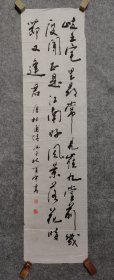 岐王宅里尋常見崔九堂前幾
度聞正是江南好風景落花時
節又逢君